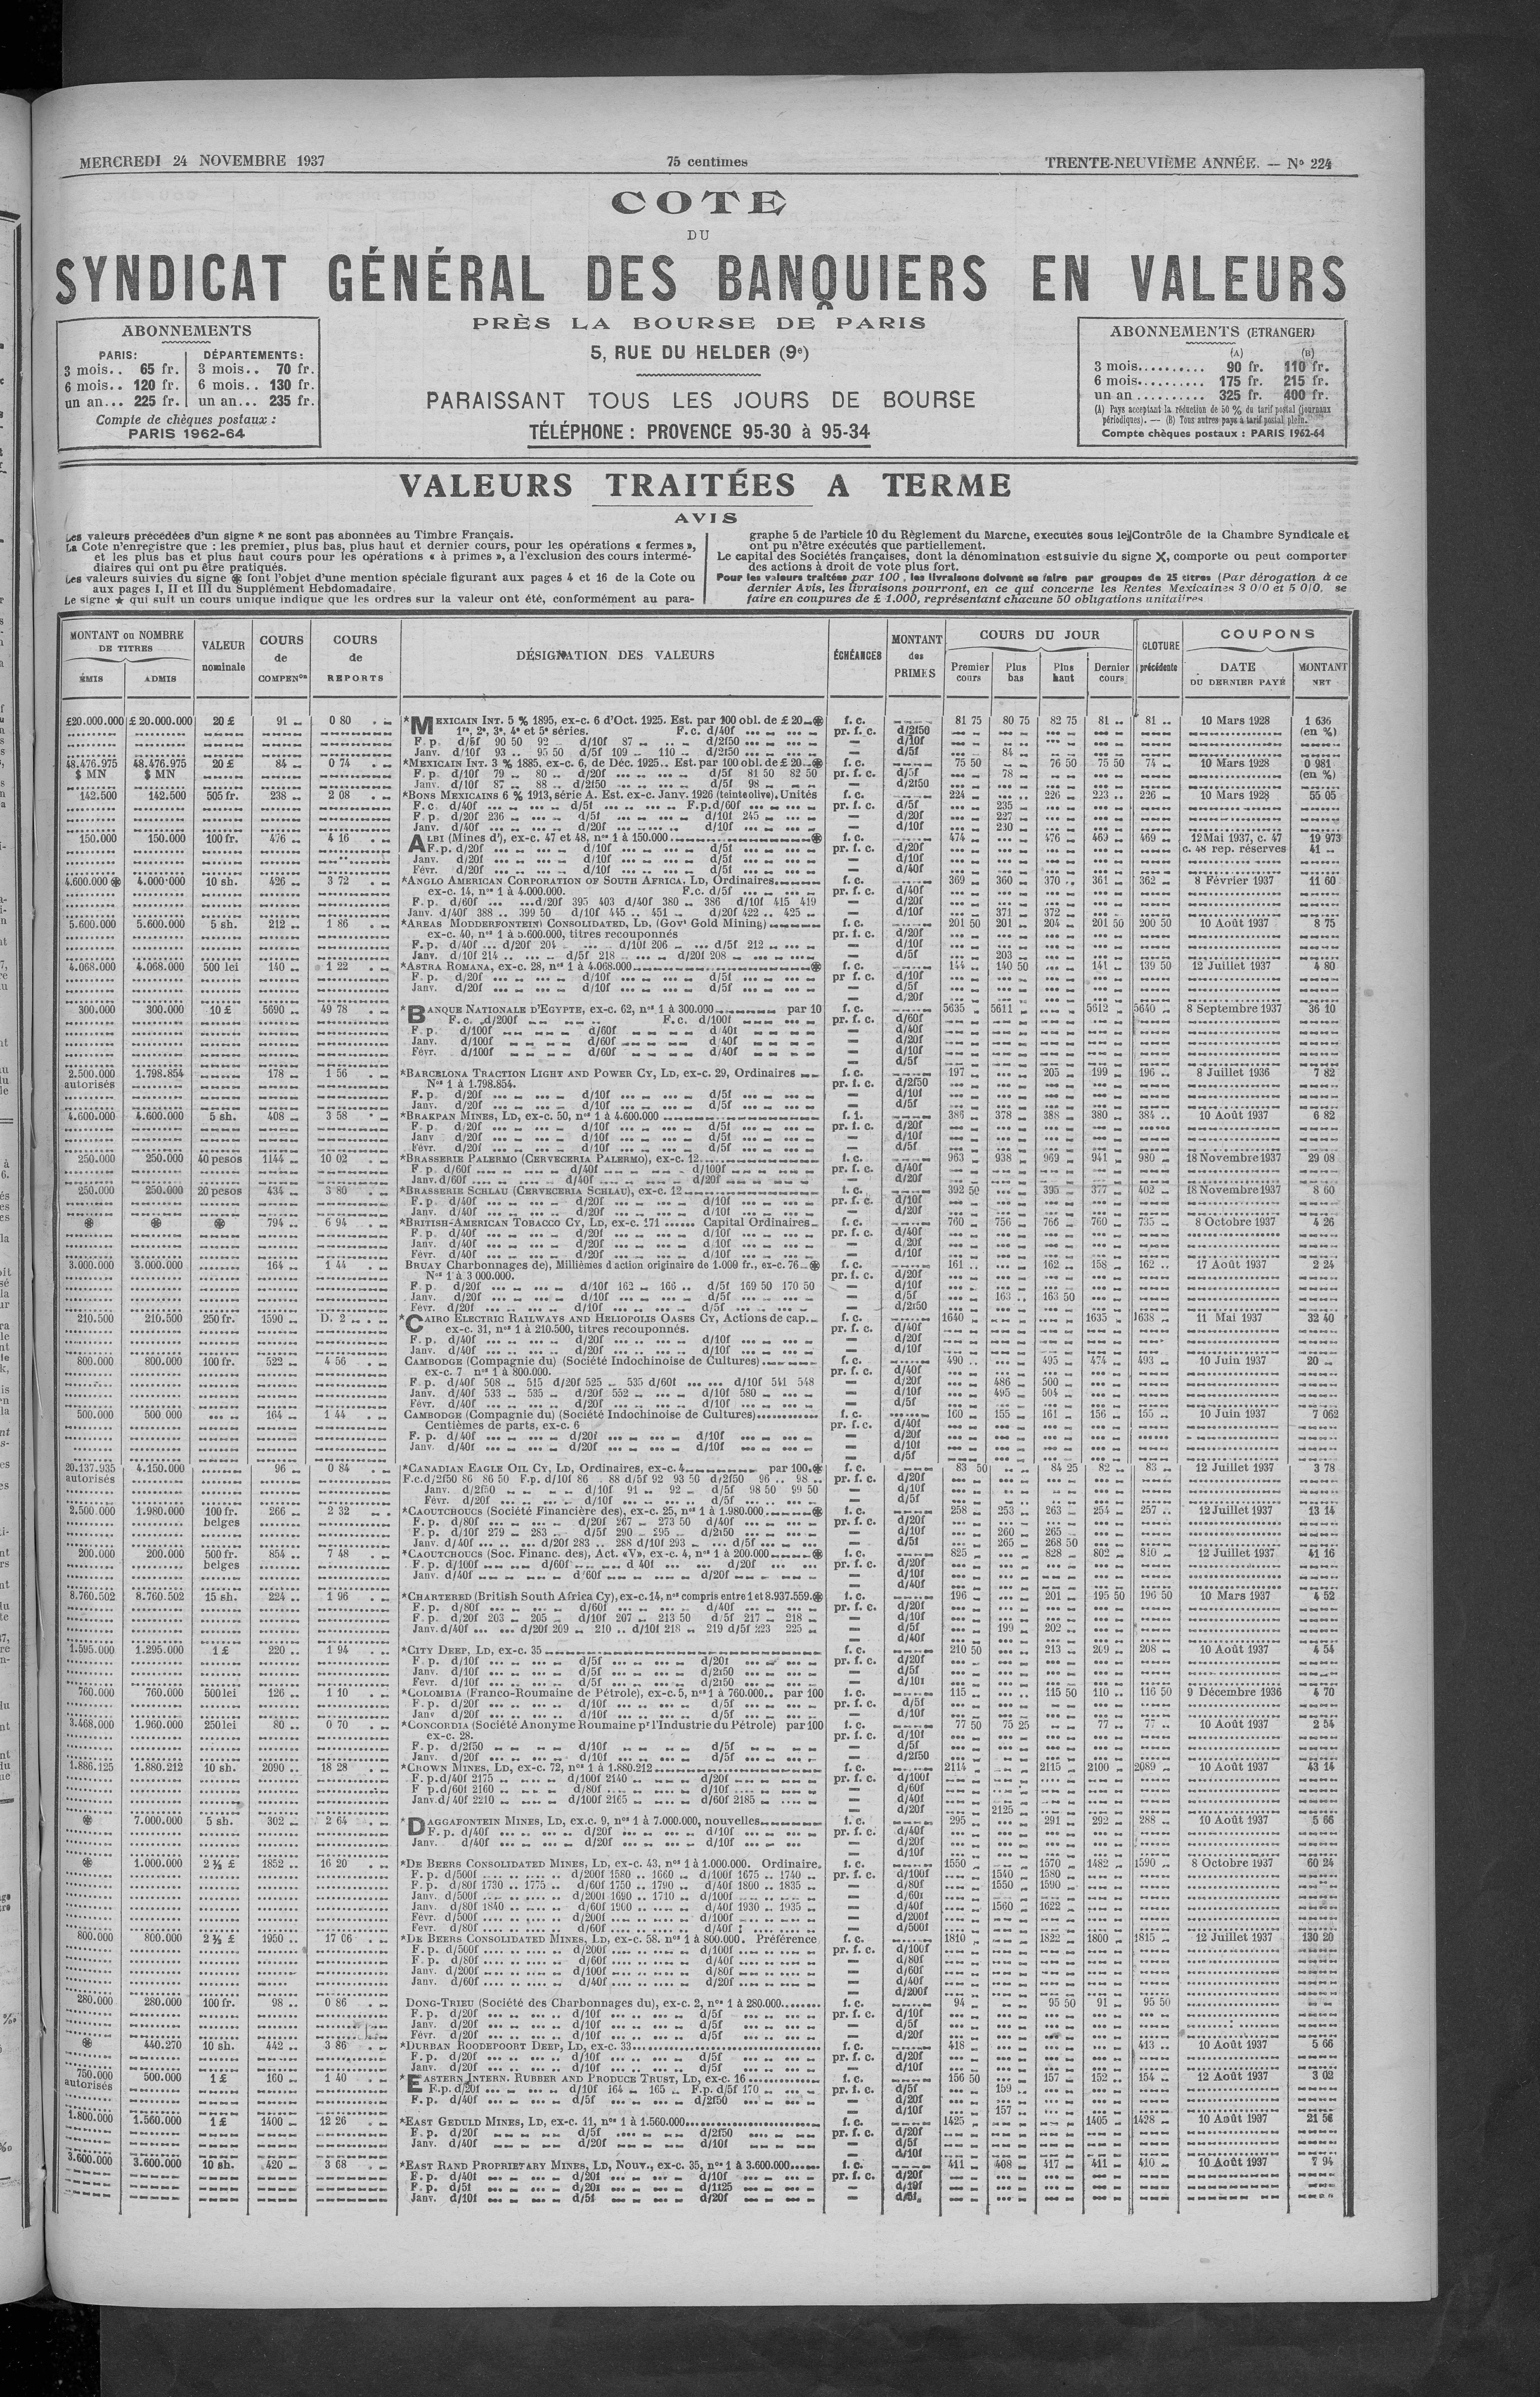 MERCREDI 24 NOVEMBRE 1937
75 centimes
TRENTE-NEUVIÈME ANNÉE. — Nº 224
COTE
DU
SYNDICAT GÉNÉRAL DES BANQUIERS EN VALEURS
PRÈS LA BOURSE DE PARIS
5, RUE DU HELDER (9e)
PARAISSANT TOUS LES JOURS DE BOURSE
TÉLÉPHONE : PROVENCE 95-30 à 95-34
ABONNEMENTS
PARIS: DÉPARTEMENTS:
3 mois.. 65 fr. 3 mois.. 70 fr.
6 mois.. 120 fr. 6 mois.. 130 fr.
un an... 225 fr. un an... 235 fr.
Compte de chèques postaux :
PARIS 1962-64
ABONNEMENTS (ETRANGER)
(A) (B)
3 mois.......... 90 fr. 110 fr.
6 mois.......... 175 fr. 215 fr.
un an .......... 325 fr. 400 fr.
(A) Pays acceptant la réduction de 50 % du tarif postal (journaux
périodiques). — (B) Tous autres pays à tarif postal plein.
Compte chèques postaux : PARIS 1962-64
VALEURS TRAITÉES A TERME
AVIS
Les valeurs précédées d'un signe * ne sont pas abonnées au Timbre Français.
La Cote n'enregistre que : les premier, plus bas, plus haut et dernier cours, pour les opérations « fermes »,
et les plus bas et plus haut cours pour les opérations « à primes », a l'exclusion des cours intermé-
diaires qui ont pu être pratiqués.
Les valeurs suivies du signe ⊛ font l'objet d'une mention spéciale figurant aux pages 4 et 16 de la Cote ou
aux pages I, II et III du Supplément Hebdomadaire.
Le signe ★ qui suit un cours unique indique que les ordres sur la valeur ont été, conformément au para-
graphe 5 de l'article 10 du Règlement du Marché, exécutés sous le Contrôle de la Chambre Syndicale et
ont pu n'être exécutés que partiellement.
Le capital des Sociétés françaises, dont la dénomination est suivie du signe X, comporte ou peut comporter
des actions à droit de vote plus fort.
Pour les valeurs traitées par 100, les livraisons doivent se faire par groupes de 25 titres (Par dérogation à ce
dernier Avis, les livraisons pourront, en ce qui concerne les Rentes Mexicaines 3 0/0 et 5 0/0. se
faire en coupures de £ 1.000, représentant chacune 50 obligations unitaires
MONTANT ou NOMBRE DE TITRES
ÉMIS ADMIS
VALEUR nominale
COURS de COMPENon
COURS de REPORTS
DÉSIGNATION DES VALEURS
ÉCHÉANCES
MONTANT des PRIMES
COURS DU JOUR
Premier cours Plus bas Plus haut Dernier cours
CLOTURE précédente
COUPONS
DATE DU DERNIER PAYÉ
MONTANT NET
£20.000.000 £ 20.000.000 20 £ 91 0 80 *MEXICAIN INT. 5 % 1895, ex-c. 6 d'Oct. 1925. Est. par 100 obl. de £ 20 ⊛ f. c. 81 75 80 75 82 75 81 .. 81 .. 10 Mars 1928 1 636
1re, 2e, 3e, 4e et 5e séries. F.c. d/40f pr. f. c. d/2f50 (en %)
F. p. d/5f 90 50 92 d/10f 87 d/2f50 — d/10f
Janv. d/10f 93 .. 95 50 d/5f 109 110 d/2f50 — d/5f 84
48.476.975 48.476.975 20 £ 84 0 74 *MEXICAIN INT. 3 % 1885. ex-c. 6, de Déc. 1925.. Est. par 100 obl. de £ 20 ⊛ f. c. 75 50 76 50 75 50 74 10 Mars 1928 0 981
$ MN $ MN F. p. d/10f 79 80 d/20f d/5f 81 50 82 50 pr. f. c. d/5f 78 (en %)
Janv. d/10f 87 88 d/2f50 d/5f 98 — d/2f50
142.500 142.500 505 fr. 238 2 08 *BONS MEXICAINS 6 % 1913, série A. Est. ex-c. Janv. 1926 (teinte olive). Unités f. c. 224 226 223 226 10 Mars 1928 55 05
F. c. d/40f d/5f F.p. d/60f pr. f. c. d/5f 235
F. p. d/20f 236 d/5f d/10f 245 — d/20f 227
Janv. d/40f d/20f d/10f — d/10f 230
150.000 150.000 100 fr. 476 4 16 ALBI (Mines d'), ex-c. 47 et 48, nos 1 à 150.000 ⊛ f. c. 474 476 463 469 12 Mai 1937, c. 47 19 973
F. p. d/20f d/10f d/5f pr. f. c. d/20f c. 48 rep. réserves 41
Janv. d/20f d/10f d/5f — d/10f
Févr. d/20f d/10f d/5f — d/40f
4.600.000 ⊛ 4.000.000 10 sh. 426 3 72 *ANGLO AMERICAN CORPORATION OF SOUTH AFRICA. LD, Ordinaires f. c. 369 360 370 361 362 8 Février 1937 11 60
ex-c. 14, nos 1 à 4.000.000. F.c. d/5f pr. f. c. d/40f
F. p. d/60f d/20f 395 403 d/40f 380 386 d/10f 415 419 — d/20f
Janv. d/40f 388 .. 399 50 d/10f 445 .. 451 d/20f 422 .. 425 — d/10f 371 372
5.600.000 5.600.000 5 sh. 212 1 86 *AREAS MODDERFONTEIN CONSOLIDATED, LD, (Govt Gold Mining) f. c. 201 50 201 204 201 50 200 50 10 Août 1937 8 75
ex-c. 40, nos 1 à 5.600.000, titres recouponnés pr. f. c. d/20f
F. p. d/40f d/20f 204 d/10f 206 d/5f 212 — d/10f
Janv. d/10f 214 d/5f 218 d/20f 208 — d/5f 203
4.068.000 4.068.000 500 lei 140 1 22 *ASTRA ROMANA, ex-c. 28, nos 1 à 4.068.000 ⊛ f. c. 144 140 50 141 139 50 12 Juillet 1937 4 80
F. p. d/20f d/10f d/5f pr. f. c. d/10f
Janv. d/20f d/10f d/5f — d/5f
— d/20f
300.000 300.000 10 £ 5690 49 78 *BANQUE NATIONALE D'EGYPTE, ex-c. 62, nos 1 à 300.000 par 10 f. c. 5635 5611 5612 5640 8 Septembre 1937 36 10
F. c. d/200f F.c. d/100f pr. f. c. d/60f
F. p. d/100f d/60f d/40f — d/40f
Janv. d/100f d/60f d/40f — d/20f
Févr. d/100f d/60f d/40f — d/10f
— d/5f
2.500.000 1.798.854 178 1 56 *BARCELONA TRACTION LIGHT AND POWER CY, LD, ex-c. 29, Ordinaires f. c. 197 205 199 196 8 Juillet 1936 7 82
autorisés Nos 1 à 1.798.854. pr. f. c. d/2f50
F. p. d/20f d/10f d/5f — d/10f
Janv. d/20f d/10f d/5f — d/5f
4.600.000 4.600.000 5 sh. 408 3 58 *BRAKPAN MINES, LD, ex-c. 50, nos 1 à 4.600.000 f. c. 386 378 388 380 384 10 Août 1937 6 82
F. p. d/20f d/10f d/5f pr. f. c. d/20f
Janv d/20f d/10f d/5f — d/10f
Févr. d/20f d/10f d/5f — d/5f
250.000 250.000 40 pesos 1144 10 02 *BRASSERIE PALERMO (CERVECERIA PALERMO), ex-c. 12 f. c. 963 938 969 941 980 18 Novembre 1937 29 08
F. p. d/60f d/40f d/100f pr. f. c. d/40f
Janv. d/60f d/40f d/20f — d/20f
250.000 250.000 20 pesos 434 3 80 *BRASSERIE SCHLAU (CERVECERIA SCHLAU), ex-c. 12 f. c. 392 50 395 377 402 18 Novembre 1937 8 60
F. p. d/40f d/20f d/10f pr. f. c. d/10f
Janv. d/40f d/20f d/10f — d/20f
⊛ ⊛ ⊛ 794 6 94 *BRITISH-AMERICAN TOBACCO CY, LD, ex-c. 171 ...... Capital Ordinaires f. c. 760 756 766 760 735 8 Octobre 1937 4 26
F. p. d/40f d/20f d/10f pr. f. c. d/40f
Janv. d/40f d/20f d/10f — d/20f
Févr. d/40f d/20f d/10f — d/10f
3.000.000 3.000.000 164 1 44 BRUAY Charbonnages de), Millièmes d action originaire de 1.000 fr., ex-c. 76 ⊛ f. c. 161 162 158 162 17 Août 1937 2 24
Nos 1 à 3 000.000. pr. f. c. d/20f
F. p. d/20f d/10f 162 166 d/5f 169 50 170 50 — d/10f
Janv. d/20f d/10f d/5f — d/5f 163 163 50
Févr. d/20f d/10f d/5f — d/2f50
210.500 210.500 250 fr. 1590 D. 2 *CAIRO ELECTRIC RAILWAYS AND HELIOPOLIS OASES CY, Actions de cap. f. c. 1640 1635 1638 11 Mai 1937 32 40
ex-c. 31, nos 1 à 210.500, titres recouponnés. pr. f. c. d/40f
F. p. d/40f d/20f d/10f — d/20f
Janv. d/40f d/20f d/10f — d/10f
800.000 800.000 100 fr. 522 4 56 CAMBODGE (Compagnie du) (Société Indochinoise de Cultures) f. c. 490 495 474 493 10 Juin 1937 20
ex-c. 7 nos 1 à 800.000. pr. f. c. d/40f
F. p. d/40f 508 515 d/20f 525 535 d/60f d/10f 541 548 — d/20f 486 500
Janv. d/40f 533 535 d/20f 552 d/10f 580 — d/10f 495 504
Févr. d/40f d/20f d/10f — d/5f
500.000 500 000 164 1 44 CAMBODGE (Compagnie du) (Société Indochinoise de Cultures) f. c. 160 155 161 156 155 10 Juin 1937 7 062
Centièmes de parts, ex-c. 6 pr. f. c. d/40f
F. p. d/40f d/20f d/10f — d/20f
Janv. d/40f d/20f d/10f — d/10f
— d/5f
20.137.935 4.150.000 96 0 84 *CANADIAN EAGLE OIL CY, LD, Ordinaires, ex-c. 4 par 100 ⊛ f. c. 83 50 84 25 82 83 12 Juillet 1937 3 78
autorisés F.c. d/2f50 86 86 50 F.p. d/10f 86 88 d/5f 92 93 50 d/2f50 96 .. 98 pr. f. c. d/20f
Janv. d/2f50 d/10f 91 92 d/5f 98 50 99 50 — d/10f
Févr. d/20f d/10f d/5f — d/5f
2.500.000 1.980.000 100 fr. 266 2 32 *CAOUTCHOUCS (Société Financière des), ex-c. 25, nos 1 à 1.980.000 ⊛ f. c. 258 253 263 254 257 12 Juillet 1937 13 14
belges F. p. d/80f d/20f 267 273 50 d/40f pr. f. c. d/20f
F. p. d/10f 279 283 d/5f 290 295 d/2f50 — d/10f 260 265
Janv. d/40f d/20f 283 .. 288 d/10f 293 d/5f — d/5f 265 268 50
200.000 200.000 500 fr. 854 7 48 *CAOUTCHOUCS (Soc. Financ. des), Act. «V», ex-c. 4, nos 1 à 200.000 ⊛ f. c. 825 828 802 816 12 Juillet 1937 41 16
belges F. p. d/100f d/60f d/40f d/20f pr. f. c. d/20f
Janv. d/40f d/60f d/20f — d/10f
— d/40f
8.760.502 8.760.502 15 sh. 224 1 96 *CHARTERED (British South Africa Cy), ex-c. 14, nos compris entre 1 et 8.937.559 ⊛ f. c. 196 201 195 50 196 50 10 Mars 1937 4 52
F. p. d/80f d/60f d/40f pr. f. c. d/20f
F. p. d/20f 203 205 d/10f 207 213 50 d/5f 217 218 — d/10f
Janv. d/40f d/20f 209 210 d/10f 218 219 d/5f 223 225 — d/5f 199 202
— d/40f
1.595.000 1.295.000 1 £ 220 1 94 *CITY DEEP, LD, ex-c. 35 f. c. 210 50 213 209 208 10 Août 1937 4 54
F. p. d/10f d/5f d/20f pr. f. c. d/20f
Janv. d/10f d/5f d/2f50 — d/5f
Févr. d/10f d/5f d/2f50 — d/10f
760.000 760.000 500 lei 126 1 10 *COLOMBIA (Franco-Roumaine de Pétrole), ex-c. 5, nos 1 à 760.000.. par 100 f. c. 115 115 50 110 116 50 9 Décembre 1936 4 70
F. p. d/20f d/10f d/5f pr. f. c. d/5f
Janv d/20f d/10f d/5f — d/10f
3.468.000 1.960.000 250 lei 80 0 70 *CONCORDIA (Société Anonyme Roumaine pr l'Industrie du Pétrole) par 100 f. c. 77 50 75 25 77 77 10 Août 1937 2 54
ex-c. 28. pr. f. c. d/10f
F. p. d/2f50 d/10f d/5f — d/5f
Janv. d/20f d/10f d/5f — d/2f50
1.886.125 1.880.212 10 sh. 2090 18 28 *CROWN MINES, LD, ex-c. 72, nos 1 à 1.880.212 f. c. 2114 2115 2100 2089 10 Août 1937 43 14
F. p. d/40f 2175 d/100f 2140 d/20f pr. f. c. d/100f
F p. d/60f 2160 d/80f d/10f — d/60f
Janv. d/40f 2210 d/100f 2165 d/60f 2185 — d/40f
— d/20f 2125
⊛ 7.000.000 5 sh. 302 2 64 *DAGGAFONTEIN MINES, LD, ex.c. 9, nos 1 à 7.000.000, nouvelles f. c. 295 291 292 288 10 Août 1937 5 66
F. p. d/40f d/20f d/10f pr. f. c. d/40f
Janv. d/40f d/20f d/10f — d/20f
— d/10f
⊛ 1.000.000 2 ½ £ 1852 16 20 *DE BEERS CONSOLIDATED MINES, LD, ex-c. 43, nos 1 à 1.000.000. Ordinaire. f. c. 1550 1570 1482 1590 8 Octobre 1937 60 24
F. p. d/500f d/200f 1580 .. 1660 d/100f 1675 1740 pr. f. c. d/100f 1540 1580
F. p. d/80f 1730 .. 1775 d/60f 1750 .. 1790 d/40f 1800 .. 1835 — d/80f 1550 1590
Janv. d/500f d/200f 1690 .. 1710 d/100f — d/60f
Janv. d/80f 1840 d/60f 1900 d/40f 1930 .. 1935 — d/40f 1560 1622
Févr. d/500f d/200f d/100f — d/200f
Févr. d/80f d/60f d/40f — d/500f
800.000 800.000 2 ½ £ 1950 17 06 *DE BEERS CONSOLIDATED MINES, LD, ex-c. 58. nos 1 à 800.000. Préférence f. c. 1810 1822 1800 1815 12 Juillet 1937 130 20
F. p. d/500f d/200f d/100f pr. f. c. d/100f
F. p. d/80f d/60f d/40f — d/80f
Janv. d/200f d/100f d/80f — d/60f
Janv. d/60f d/40f d/20f — d/40f
— d/200f
280.000 280.000 100 fr. 98 0 86 DONG-TRIEU (Société des Charbonnages du), ex-c. 2, nos 1 à 280.000 f. c. 94 95 50 91 95 50
F. p. d/20f d/10f d/5f pr. f. c. d/10f
Janv. d/20f d/10f d/5f — d/5f
Févr. d/20f d/10f d/5f — d/20f
⊛ 440.270 10 sh. 442 3 86 *DURBAN ROODEPOORT DEEP, LD, ex-c. 33 f. c. 418 413 10 Août 1937 5 66
F. p. d/20f d/10f d/5f pr. f. c. d/20f
Janv. d/20f d/10f d/5f — d/10f
750.000 500.000 1 £ 160 1 40 *EASTERN INTERN. RUBBER AND PRODUCE TRUST, LD, ex-c. 16 f. c. 156 50 157 152 154 12 Août 1937 3 02
autorisés F.p. d/20f d/10f 164 165 F.p. d/5f 170 pr. f. c. d/5f 159
F. p. d/40f d/5f d/2f50 — d/20f
— d/10f 157
1.800.000 1.560.000 1 £ 1400 12 26 *EAST GEDULD MINES, LD, ex-c. 11, nos 1 à 1.560.000 f. c. 1425 1405 1428 10 Août 1937 21 56
F. p. d/20f d/5f d/2f50 pr. f. c. d/20f
Janv. d/40f d/20f d/10f — d/5f
— d/10f
3.600.000 3.600.000 10 sh. 420 3 68 *EAST RAND PROPRIETARY MINES, LD, Nouv., ex-c. 35, nos 1 à 3.600.000 f. c. 411 408 417 411 410 10 Août 1937 7 94
F. p. d/40f d/20f d/10f pr. f. c. d/20f
F. p. d/5f d/20f d/1f25 — d/10f
Janv. d/10f d/5f d/20f — d/5f